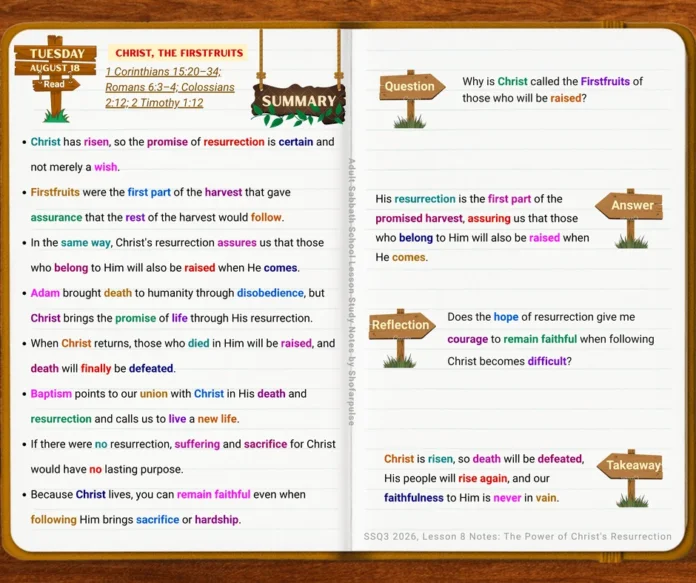 TUESDAY
AUGUST 18
Read
CHRIST, THE FIRSTFRUITS
1 Corinthians 15:20–34;
Romans 6:3–4; Colossians
2:12; 2 Timothy 1:12
SUMMARY
• Christ has risen, so the promise of resurrection is certain and
not merely a wish.
• Firstfruits were the first part of the harvest that gave
assurance that the rest of the harvest would follow.
• In the same way, Christ's resurrection assures us that those
who belong to Him will also be raised when He comes.
• Adam brought death to humanity through disobedience, but
Christ brings the promise of life through His resurrection.
• When Christ returns, those who died in Him will be raised, and
death will finally be defeated.
• Baptism points to our union with Christ in His death and
resurrection and calls us to live a new life.
• If there were no resurrection, suffering and sacrifice for Christ
would have no lasting purpose.
• Because Christ lives, you can remain faithful even when
following Him brings sacrifice or hardship.
Adult-Sabbath-School-Lesson-Study-Notes-by-Shofarpulse
Question
Why is Christ called the Firstfruits of
those who will be raised?
Answer
His resurrection is the first part of the
promised harvest, assuring us that those
who belong to Him will also be raised when
He comes.
Reflection
Does the hope of resurrection give me
courage to remain faithful when following
Christ becomes difficult?
Takeaway
Christ is risen, so death will be defeated,
His people will rise again, and our
faithfulness to Him is never in vain.
SSQ3 2026, Lesson 8 Notes: The Power of Christ's Resurrection